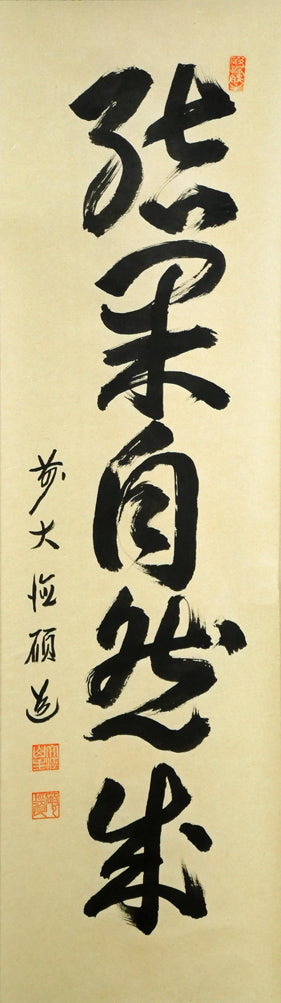 結果自然成
前大德碩道